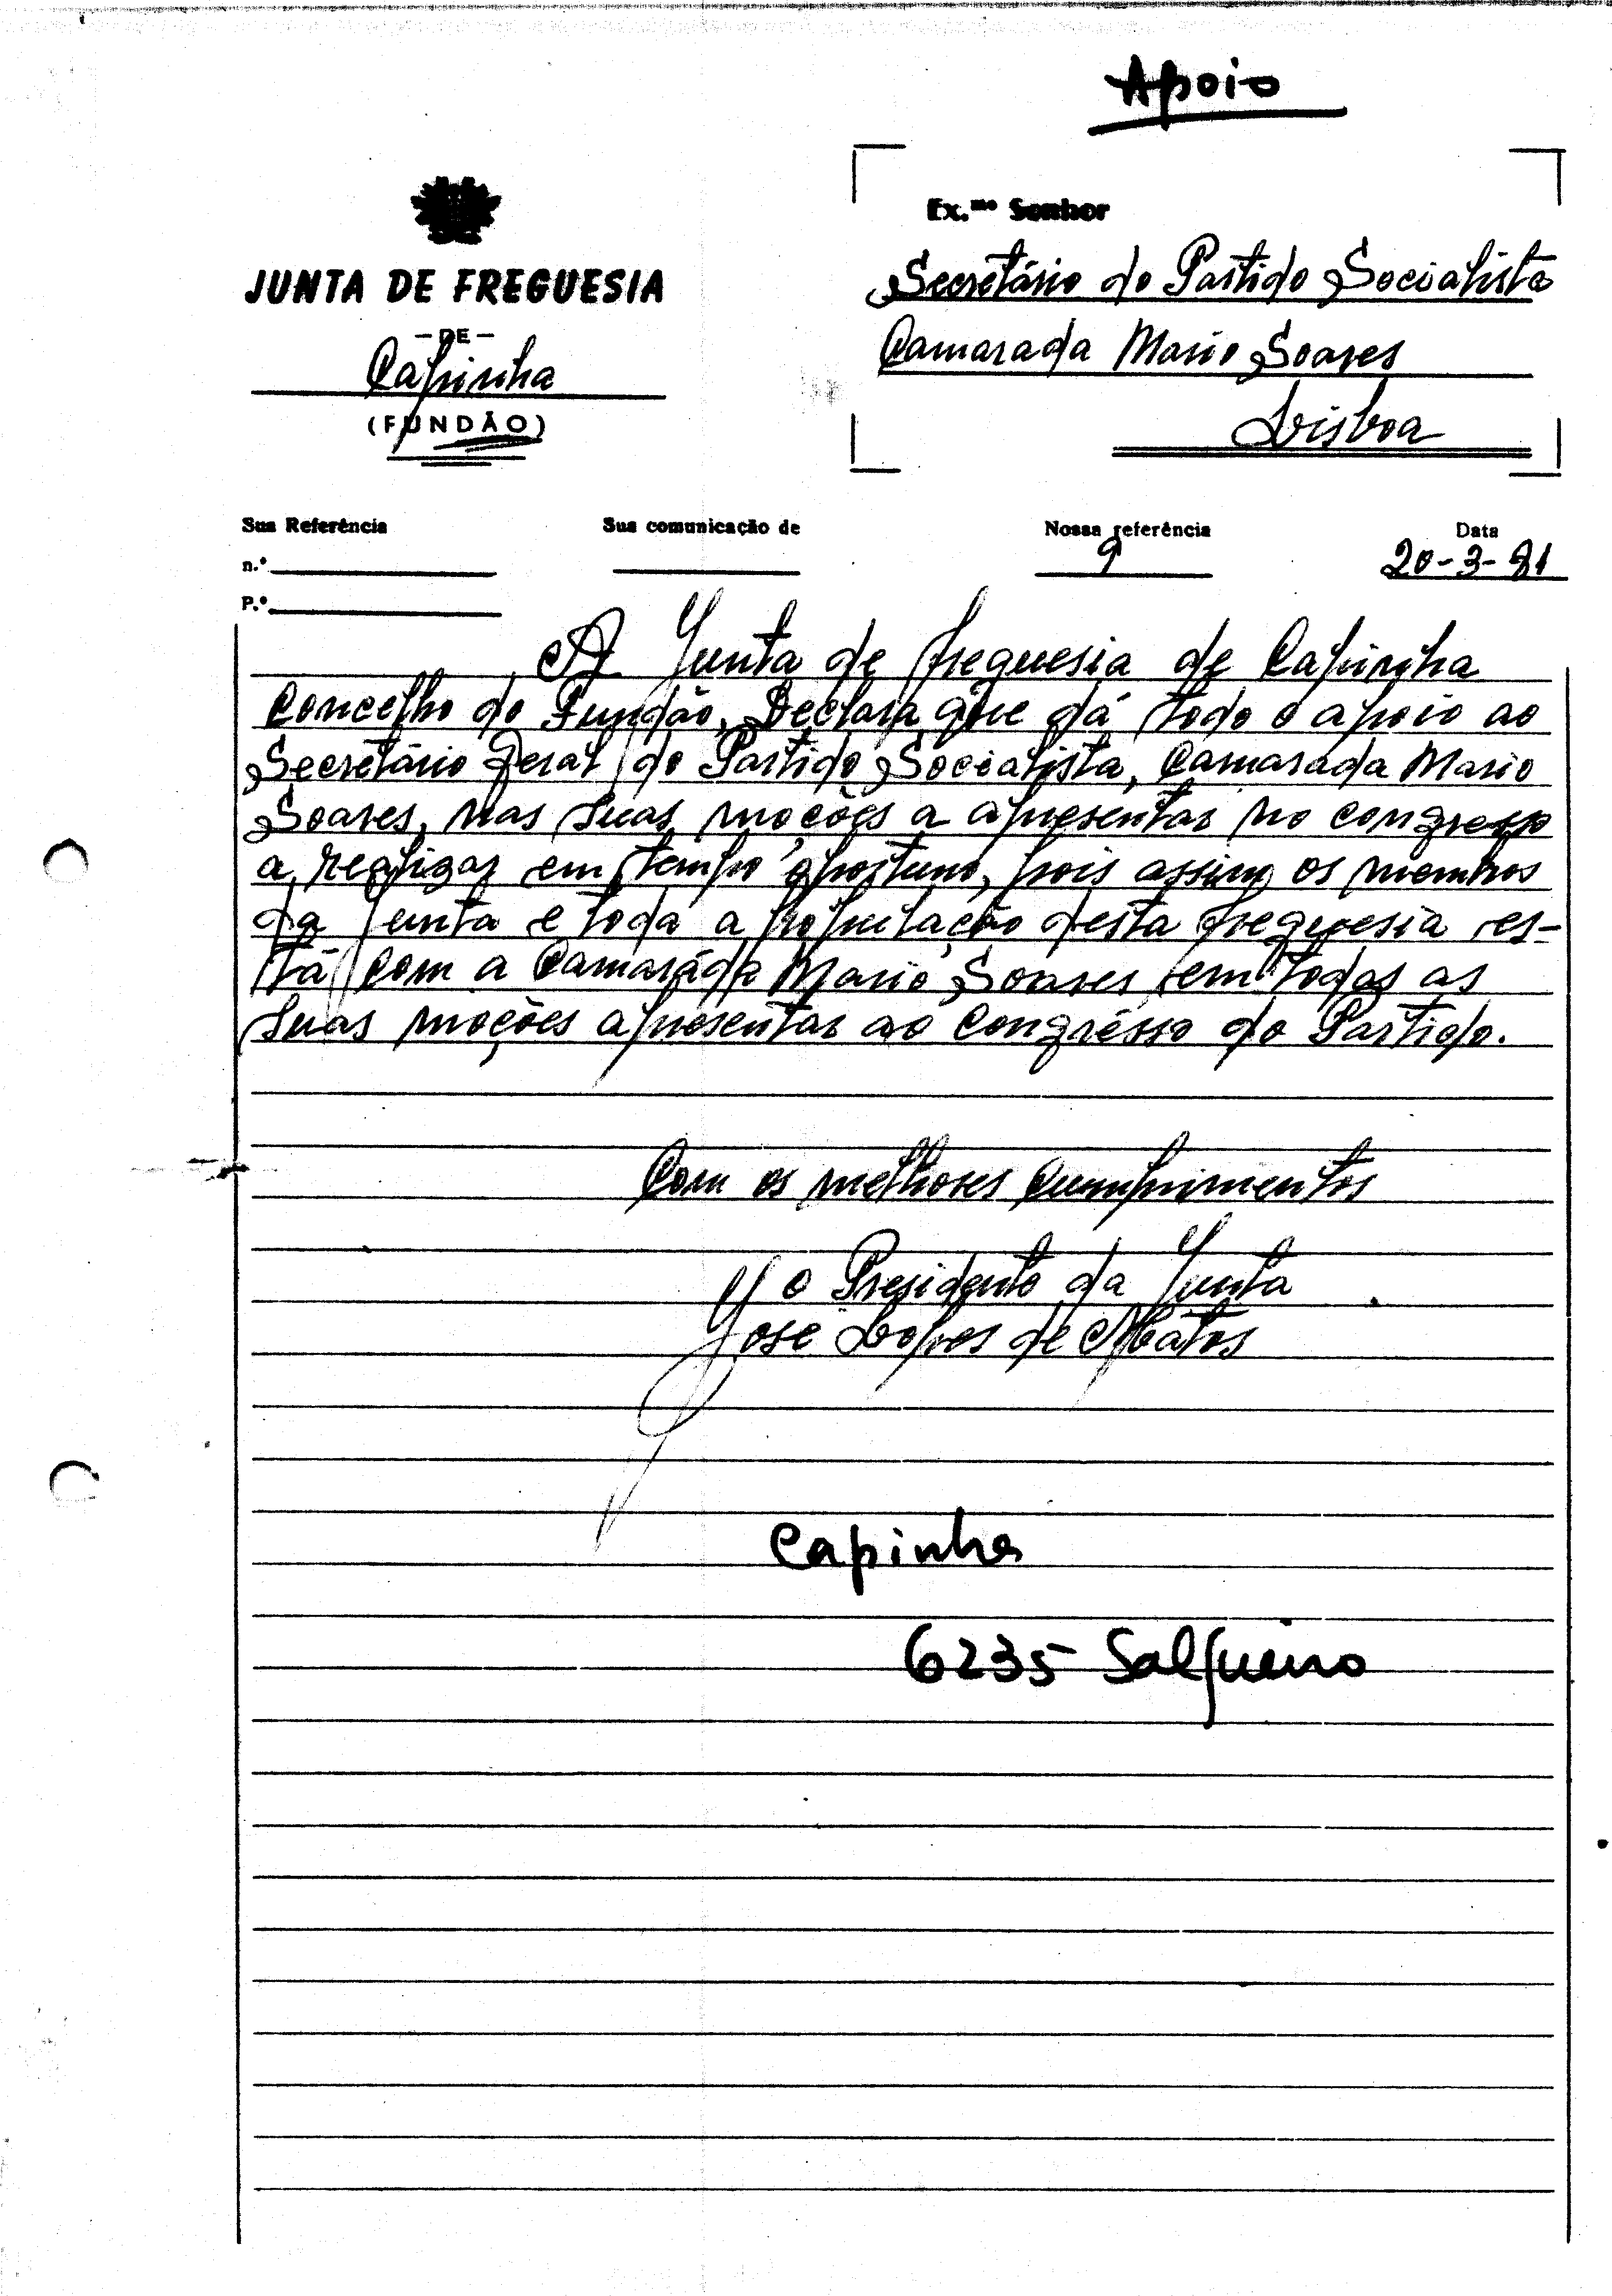 Apoio
Ex.mo Senhor
JUNTA DE FREGUESIA
— DE —
Capinha
(FUNDÃO)
Secretário do Partido Socialista
Camarada Mario Soares
Lisboa
Sua Referência
Sua comunicação de
Nossa referência
Data
n.º
9
20-3-81
P.º
A Junta de freguesia de Capinha
Concelho do Fundão, Declara que dá todo o apoio ao
Secretário Geral do Partido Socialista, Camarada Mario
Soares, nas suas moções a apresentar no congresso
a realizar em tempo oportuno, pois assim os membros
da Junta e toda a população desta freguesia es-
tá com a Camaráda Mario Soares em todas as
suas moções apresentar ao Congrésso do Partido.
Com os melhores Cumprimentos
O Presidente da Junta
José Lopes de Mátos
Capinha
6235 Salgueiro